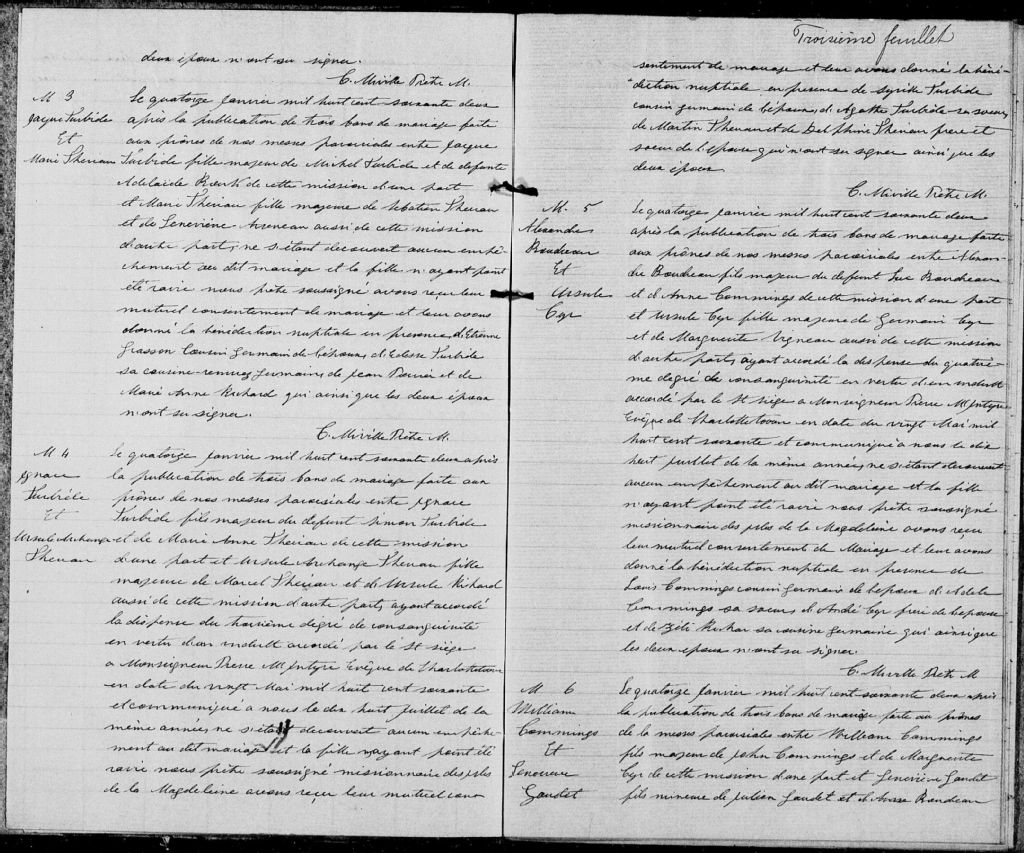 deux époux n'ont su signer.
C. Miville Ptêtre M.
M 3
Jaque Turbide
Et
Marie Theriau
Le quatorze Janvier mil huit cent soixante deux
après la publication de trois bans de mariage faite
aux prônes de nos messes paroissiales entre Jacque
Turbide fille majeur de Michel Turbide et de defunte
Adelaide Bourk de cette mission d'une part
et Marie Theriau fille majeure de Sebatien Theriau
et de Genevieve Arseneau aussi de cette mission
d'autre part; ne s'étant decouvert aucun empê-
chement au dit mariage et la fille n'ayant point
été ravie nous prêtre soussigné avons reçu leur
mutuel consentement de mariage et leur avons
donné la bénédiction nuptiale en presence d'Etienne
Grasson Cousin Germain de l'époux, d'Edesse Turbide
sa cousine germaine, de Jean Poirier et de
Marie Anne Richard qui ainsi que les deux époux
n'ont su signer.
C. Miville Prêtre M.
M 4
Ignace
Turbide
Et
Ursule Archange
Theriau
Le quatorze Janvier mil huit cent soixante deux après
la publication de trois bans de mariage faite aux
prônes de nos messes paroissiales entre Ignace
Turbide fils majeur du defunt Simon Turbide
et de Marie Anne Theriau de cette mission
d'une part et Ursule Archange Theriau fille
majeure de Marcel Theriau et de Ursule Richard
aussi de cette mission d'autre part, ayant accordé
la dispense du troisième degré de consanguinité
en vertu d'un indult accordé par le St siège
a Monseigneur Pierre McIntyre Evêque de Charlottetown
en date du vingt Mai mil huit cent soixante
et communiqué a nous le dix huit Juillet de la
même année; ne s'étant decouvert aucun empêche-
ment au dit mariage et la fille n'ayant point été
ravie nous prêtre soussigné missionnaire des îles
de la Magdeleine avons reçu leur mutuel con-
Troisième feuillet
sentement de mariage et leur avons donné la béné-
diction nuptiale en presence de Cyrille Turbide
cousin germain de l'époux, d'Agathe Turbide sa soeur,
de Martin Theriau et de Delphine Theriau frere et
soeur de l'épouse qui n'ont su signer ainsi que les
deux époux.
C. Miville Prêtre M.
M. 5
Alexandre
Boudreau
Et
Ursule
Cyr
Le quatorze Janvier mil huit cent soixante deux
après la publication de trois bans de mariage faite
aux prônes de nos messes paroissiales entre Alexan-
dre Boudreau fils majeur du defunt Luc Boudreau
et d'Anne Commings de cette mission d'une part
et Ursule Cyr fille majeure de Germain Cyr
et de Marguerite Vigneau aussi de cette mission
d'autre part, ayant accordé la dispense du quatriè-
me degré de consanguinité en vertu d'un indult
accordé par le St siège a Monseigneur Pierre McIntyre
Evêque de Charlottetown en date du vingt Mai mil
huit cent soixante et communiqué a nous le dix
huit Juillet de la même année; ne s'étant decouvert
aucun empêchement au dit mariage et la fille
n'ayant point été ravie nous prêtre soussigné
missionnaire des îles de la Magdeleine avons reçu
leur mutuel consentement de Mariage et leur avons
donné la bénédiction nuptiale en presence de
Louis Commings cousin germain de l'epoux, d'Adele
Commings sa soeur, d'André Cyr frere de l'epouse
et de sa cousine germaine qui ainsi que
les deux époux n'ont su signer.
C. Miville Prêtre M
M. 6
William
Commings
Et
Genevieve
Gaudet
Le quatorze Janvier mil huit cent soixante deux après
la publication de trois bans de mariage faite au prônes
de la messes paroissiales entre William Commings
fils majeur de John Commings et de Marguerite
Cyr de cette mission d'une part et Genevieve Gaudet
fille mineure de Julien Gaudet et d' Boudreau